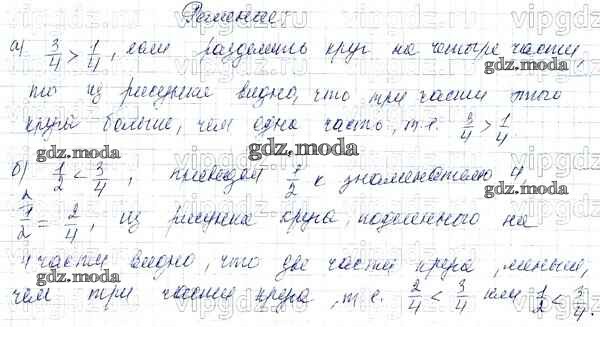 Решение:
а) 3/4 > 1/4, если разделить круг на четыре части,
то из рисунка видно, что три части этого
круга больше, чем одна часть, т.е. 3/4 > 1/4.
б) 1/2 < 3/4, приведем 1/2 к знаменателю 4,
1/2 = 2/4, из рисунка круга, поделенного на
4 части видно, что две части круга, меньше,
чем три части круга, т.е. 2/4 < 3/4 или 1/2 < 3/4.
vipgdz.ru
gdz.moda